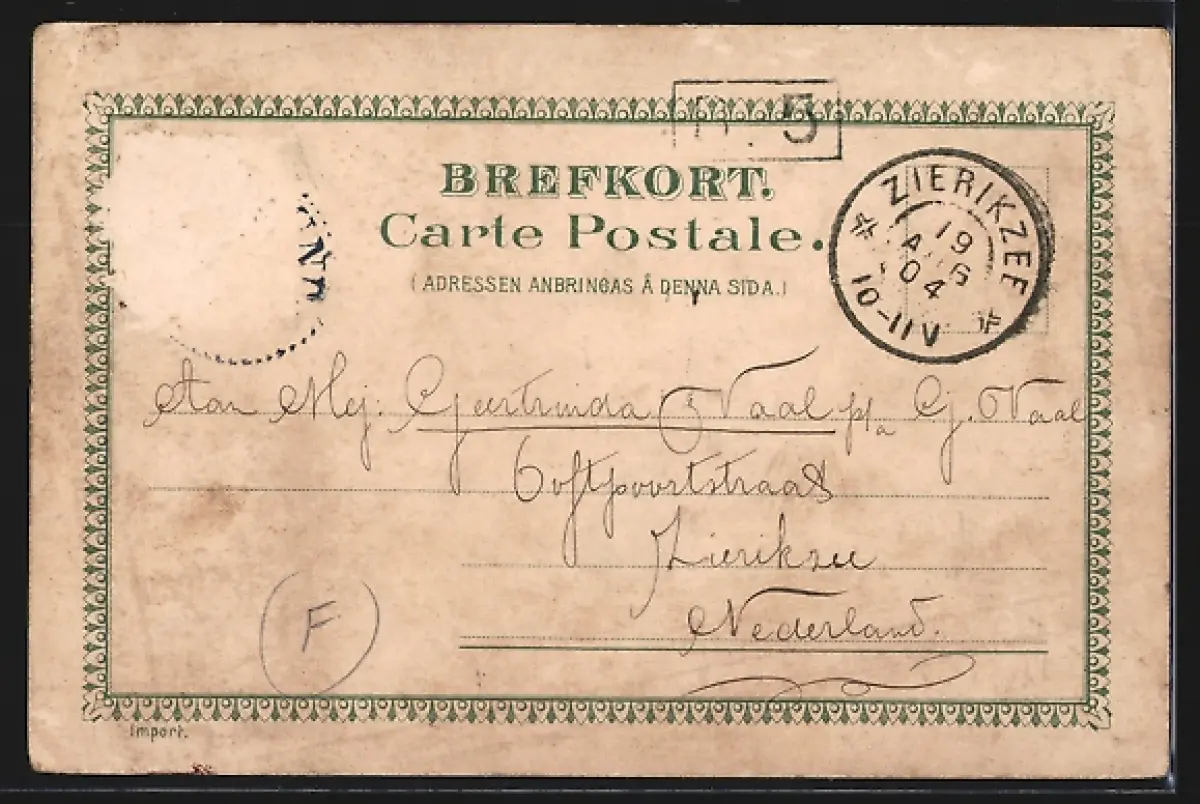 5
BREFKORT.
Carte Postale.
(ADRESSEN ANBRINGAS Å DENNA SIDA.)
ZIERIKZEE
19
AUG
04
10-11V
N
Aan Mej: Geertruida Waal p/a Cj. Waal
Oostpoortstraat
Zierikzee
Nederland.
F
Import.